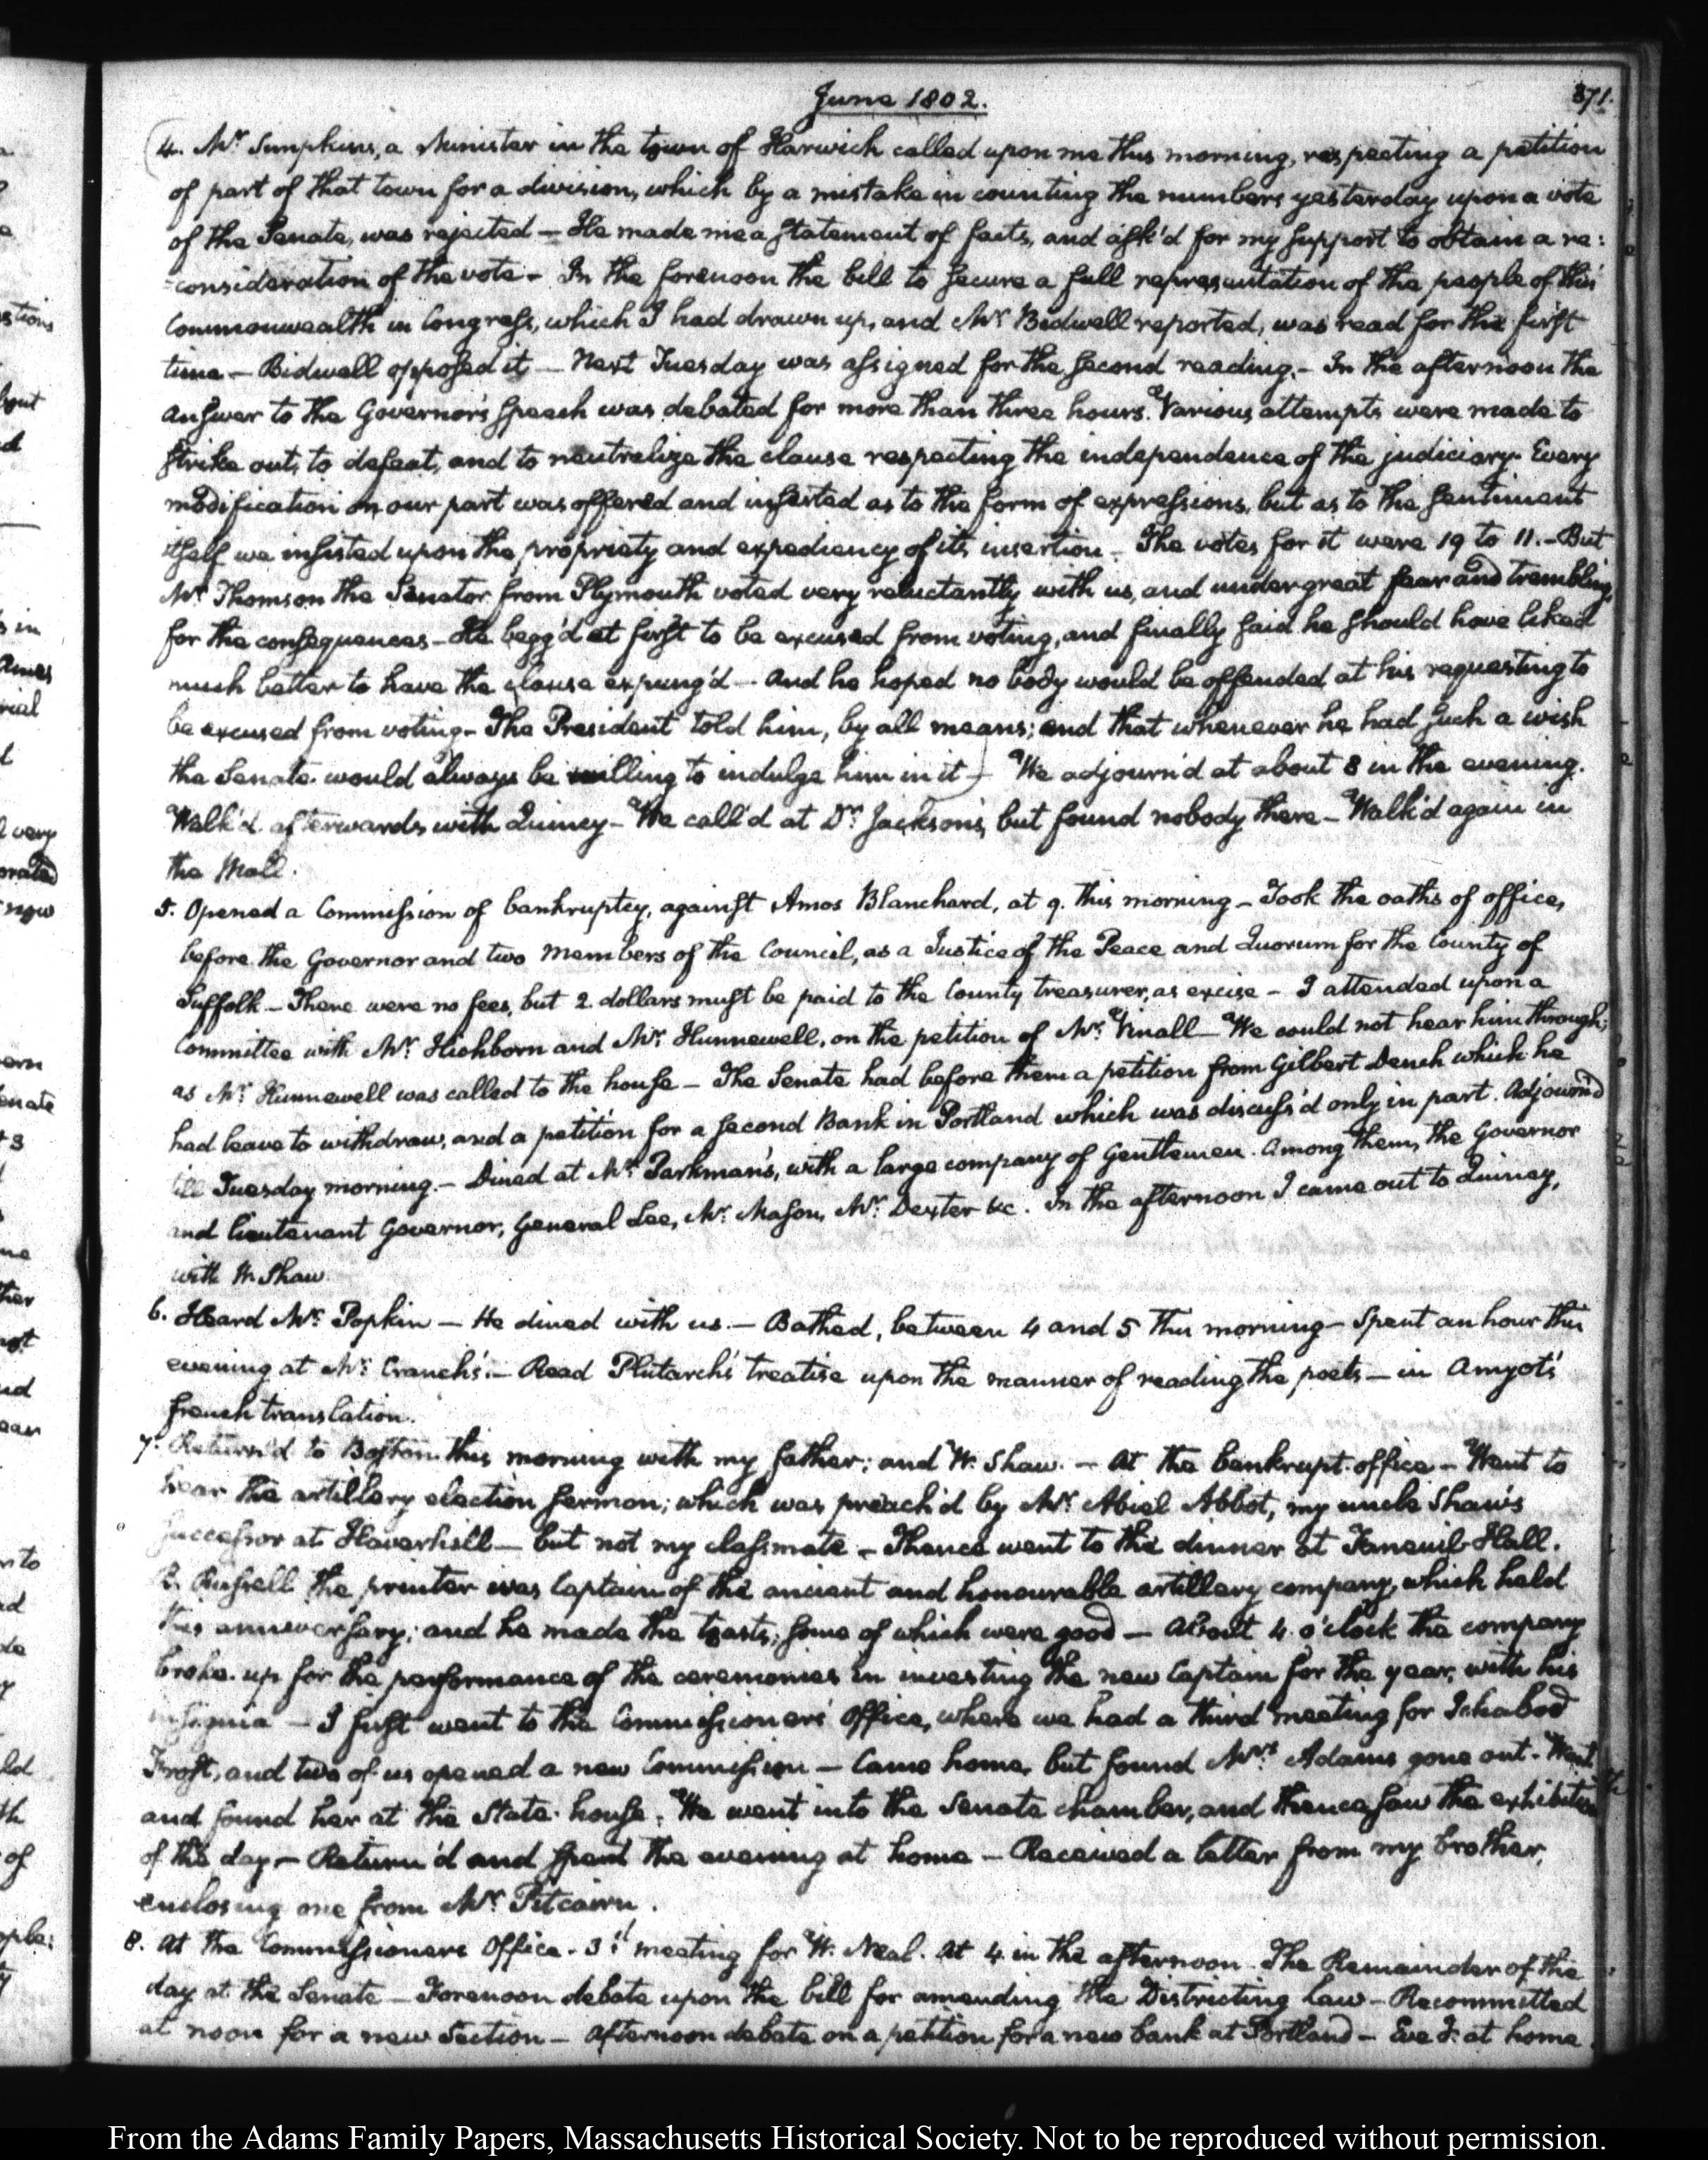 June 1802.
371.
4. Mr Simpkins, a Minister in the town of Harwich called upon me this morning, respecting a petition
of part of that town for a division, which by a mistake in counting the numbers yesterday upon a vote
of the Senate, was rejected — He made me a statement of facts, and ask'd for my support to obtain a re:
=consideration of the vote — In the forenoon the bill to secure a full representation of the people of this
Commonwealth in Congress, which I had drawn up, and Mr Bidwell reported, was read for the first
time — Bidwell opposed it — Next Tuesday was assigned for the second reading. — In the afternoon the
answer to the Governor's speech was debated for more than three hours. Various attempts were made to
strike out, to defeat, and to neutralize the clause respecting the independence of the judiciary. Every
modification on our part was offered and inserted as to the form of expressions, but as to the sentiment
itself we insisted upon the propriety and expediency of its insertion — The votes for it were 19 to 11. — But
Mr Thomson the Senator from Plymouth voted very reluctantly with us, and under great fear and trembling,
for the consequences — He begg'd at first to be excused from voting, and finally said he should have liked
much better to have the clause expung'd — And he hoped no body would be offended at his requesting to
be excused from voting — The President told him, by all means; and that whenever he had such a wish
the Senate would always be willing to indulge him in it — We adjourn'd at about 8 in the evening.
Walk'd afterwards with Quincy — We call'd at Dr Jackson's, but found nobody there — Walk'd again in
the Mall.
5. Opened a Commission of bankruptcy, against Amos Blanchard, at 9. this morning — Took the oaths of office,
before the Governor and two members of the Council, as a Justice of the Peace and Quorum for the County of
Suffolk — There were no fees, but 2. dollars must be paid to the County treasurer, as excise — I attended upon a
Committee with Mr Hichborn and Mr Hunnewell, on the petition of Mr Vinall — We could not hear him through;
as Mr Hunnewell was called to the house — The Senate had before them a petition from Gilbert Dench which he
had leave to withdraw, and a petition for a second Bank in Portland which was discuss'd only in part. Adjourn'd
till Tuesday morning. — Dined at Mr Parkman's, with a large company of Gentlemen. Among them, the Governor
and lieutenant Governor, General Lee, Mr Mason, Mr Dexter &c. In the afternoon I came out to Quincy,
with W. Shaw.
6. Heard Mr Popkin — He dined with us. — Bathed, between 4 and 5 this morning — Spent an hour this
evening at Mr Cranch's. — Read Plutarch's treatise upon the manner of reading the poets — in Amyot's
french translation.
7. Return'd to Boston this morning with my father; and W. Shaw. — At the bankrupt office — Went to
hear the artillery election sermon; which was preach'd by Mr Abiel Abbot, my uncle Shaw's
successor at Haverhill — but not my classmate — Thence went to the dinner at Faneuil-Hall.
B. Russell the printer was Captain of the ancient and honourable artillery company, which held
this anniversary; and he made the toasts; some of which were good — About 4. o'clock the company
broke up for the performance of the ceremonies in investing the new Captain for the year, with his
insignia — I first went to the Commissioners' Office, where we had a third meeting for Ichabod
Frost, and two of us opened a new Commission — Came home, but found Mrs Adams gone out — Went
and found her at the State-house. We went into the Senate chamber, and thence saw the exhibition
of the day — Return'd and spent the evening at home — Received a letter from my brother,
enclosing one from Mr Pitcairn.
8. At the Commissioners Office. 3d meeting for W. Neal. At 4 in the afternoon. The Remainder of the
day at the Senate — Forenoon debate upon the bill for amending the Districting Law — Recommitted
at noon for a new Section — Afternoon debate on a petition for a new bank at Portland — Eveg at home.
From the Adams Family Papers, Massachusetts Historical Society. Not to be reproduced without permission.